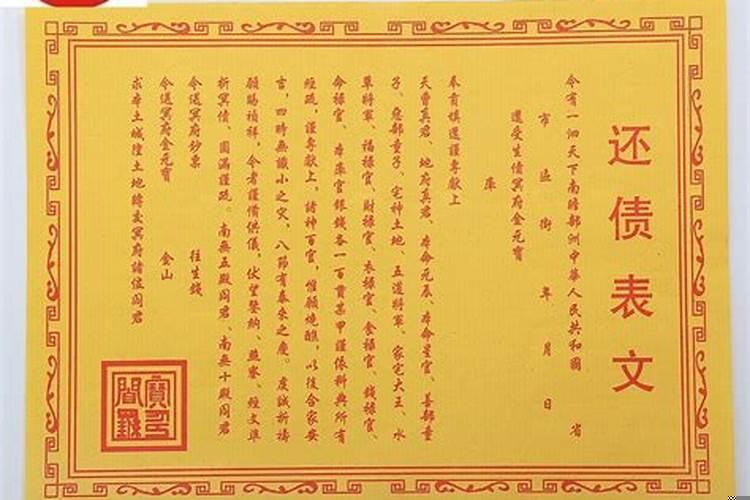 还债表文
今有一泗天下南贍部洲中華人民共和國 省
市 區 街 年 月 日
還受生債冥府金元寶
庫
奉育填還謹專獻上
天曹真君、地府真君、本命元辰、本命星官、善部童
子、惡部童子、宅神土地、五道將軍、家宅大王、水
草將軍、福禄官、財禄官、衣禄官、食禄官、錢禄官、
命禄官、本庫官銀錢各一百貫某甲謹依科典所有
經疏，謹專獻上，諸神百官，惟願燒醮，以後合家安
吉，四時無識小之灾，八節有泰來之慶。虔誠祈禱
願賜禎祥，令者謹備供儀，伏望鑒納、慈寥、經文準
折冥債、圓滿謹疏。南無五殿阎君、南無十殿阎君
令送冥府鈔票 往生錢
令送冥府金元寶 金山
求本土城隍土地轉交冥府諸位阎君